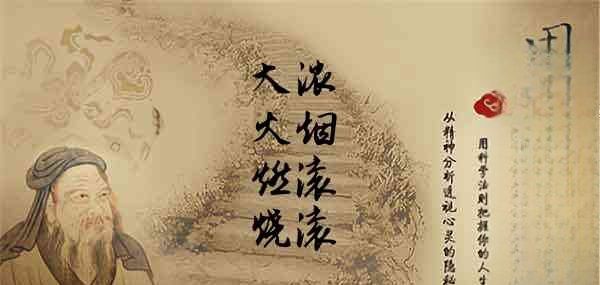 浓烟滚滚
大火燃烧
用科学法则把握你的人生
从精神分析透视心灵的隐秘